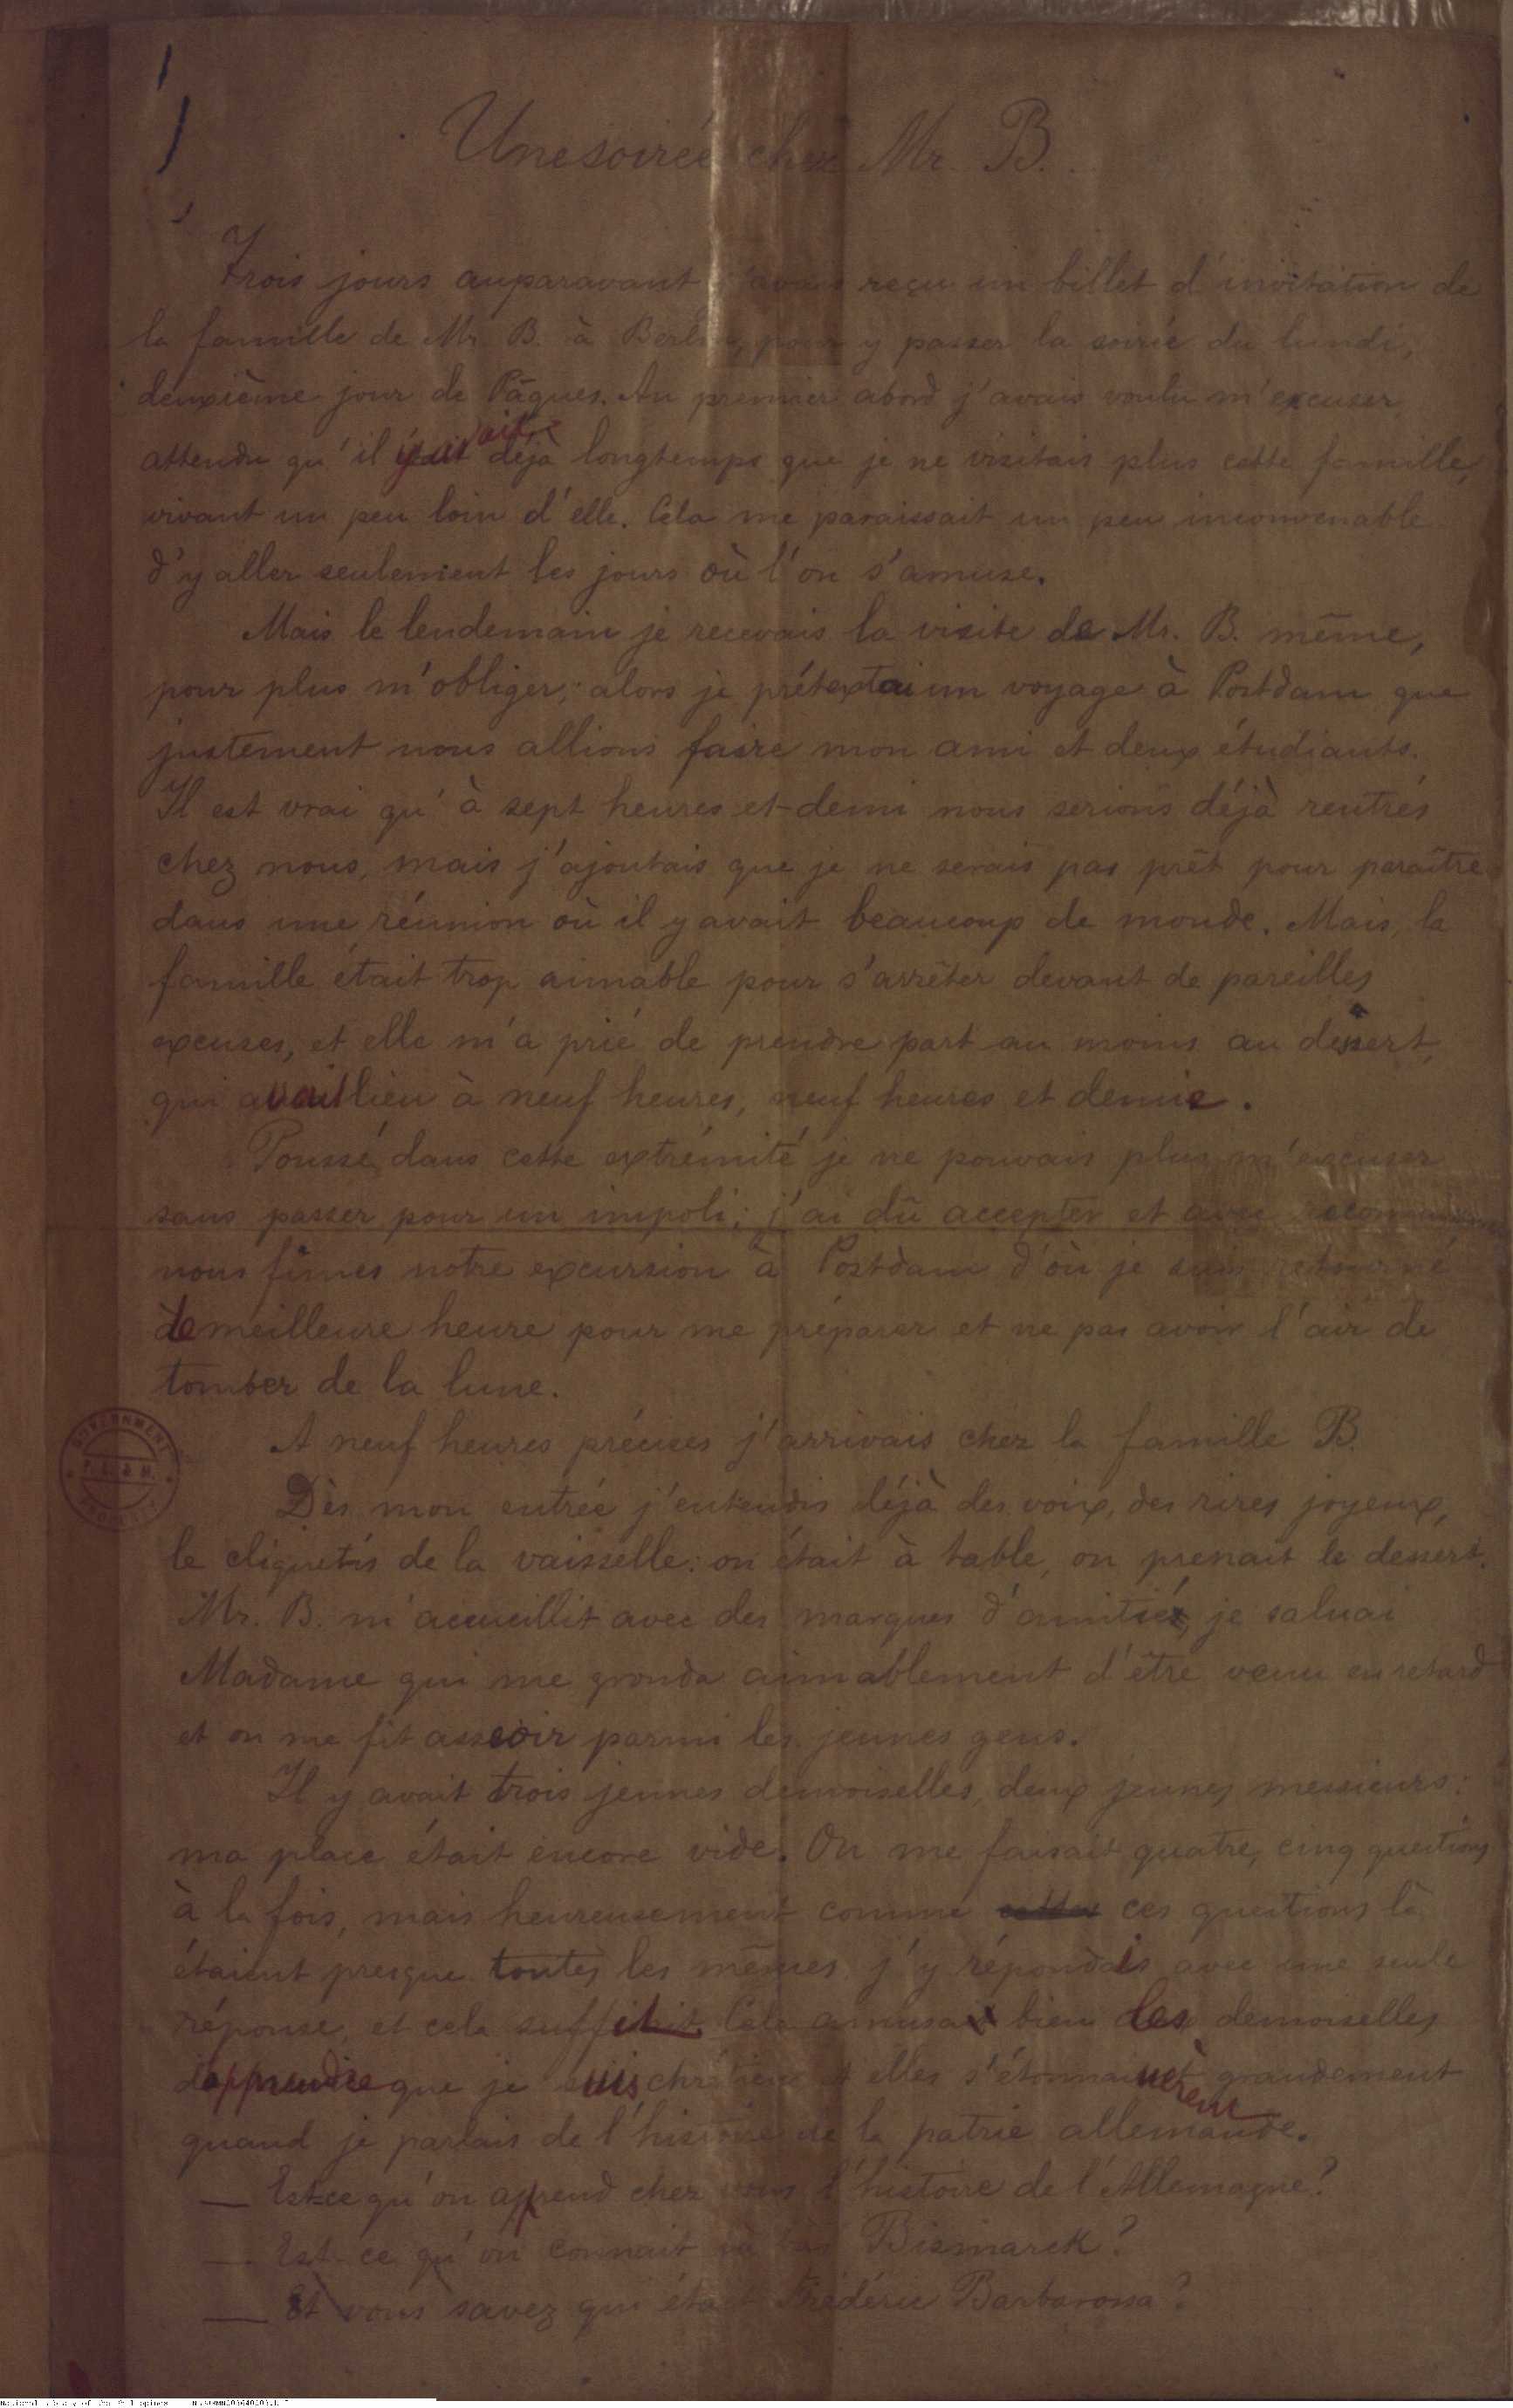 Une soirée chez Mr. B.
Trois jours auparavant j'avais reçu un billet d'invitation de
la famille de Mr. B. à Berlin, pour y passer la soirée du lundi,
deuxième jour de Pâques. Au premier abord j'avais voulu m'excuser
attendu qu'il y avait déjà longtemps que je ne visitais plus cette famille,
vivant un peu loin d'elle. Cela me paraissait un peu inconvenable
d'y aller seulement les jours où l'on s'amuse.
Mais le lendemain je recevais la visite de Mr. B. même,
pour plus m'obliger; alors je prétextai un voyage à Postdam que
justement nous allions faire mon ami et deux étudiants.
Il est vrai qu'à sept heures et demi nous serions déjà rentrés
chez nous, mais j'ajoutais que je ne serais pas prêt pour paraître
dans une réunion où il y avait beaucoup de monde. Mais, la
famille était trop aimable pour s'arrêter devant de pareilles
excuses, et elle m'a prié de prendre part au moins au dessert,
qui avait lieu à neuf heures, neuf heures et demie.
Poussé dans cette extrémité je ne pouvais plus m'excuser
sans passer pour un impoli; j'ai dû accepter et avec
nous fîmes notre excursion à Postdam d'où je suis retourné
de meilleure heure pour me préparer et ne pas avoir l'air de
tomber de la lune.
A neuf heures précises j'arrivais chez la famille B.
GOVERNMENT
PROPERTY
Dès mon entrée j'entendis déjà des voix, des rires joyeux,
le cliquetis de la vaisselle: on était à table, on prenait le dessert.
Mr. B. m'accueillit avec des marques d'amitié, je saluai
Madame qui me gronda aimablement d'être venu en retard
et on me fit asseoir parmi les jeunes gens.
Il y avait trois jeunes demoiselles, deux jeunes messieurs:
ma place était encore vide. On me faisait quatre, cinq questions
à la fois, mais heureusement comme ces questions là
étaient presque toutes les mêmes j'y répondis avec une seule
réponse, et cela suffit. Cela amusa bien les demoiselles
d'apprendre que je suis chrétien et elles s'étonnèrent grandement
quand je parlais de l'histoire de la patrie allemande.
— Est-ce qu'on apprend chez vous l'histoire de l'Allemagne?
— Est-ce qu'on connait là bas Bismarck?
— Et vous savez qui était Frédéric Barbarossa?